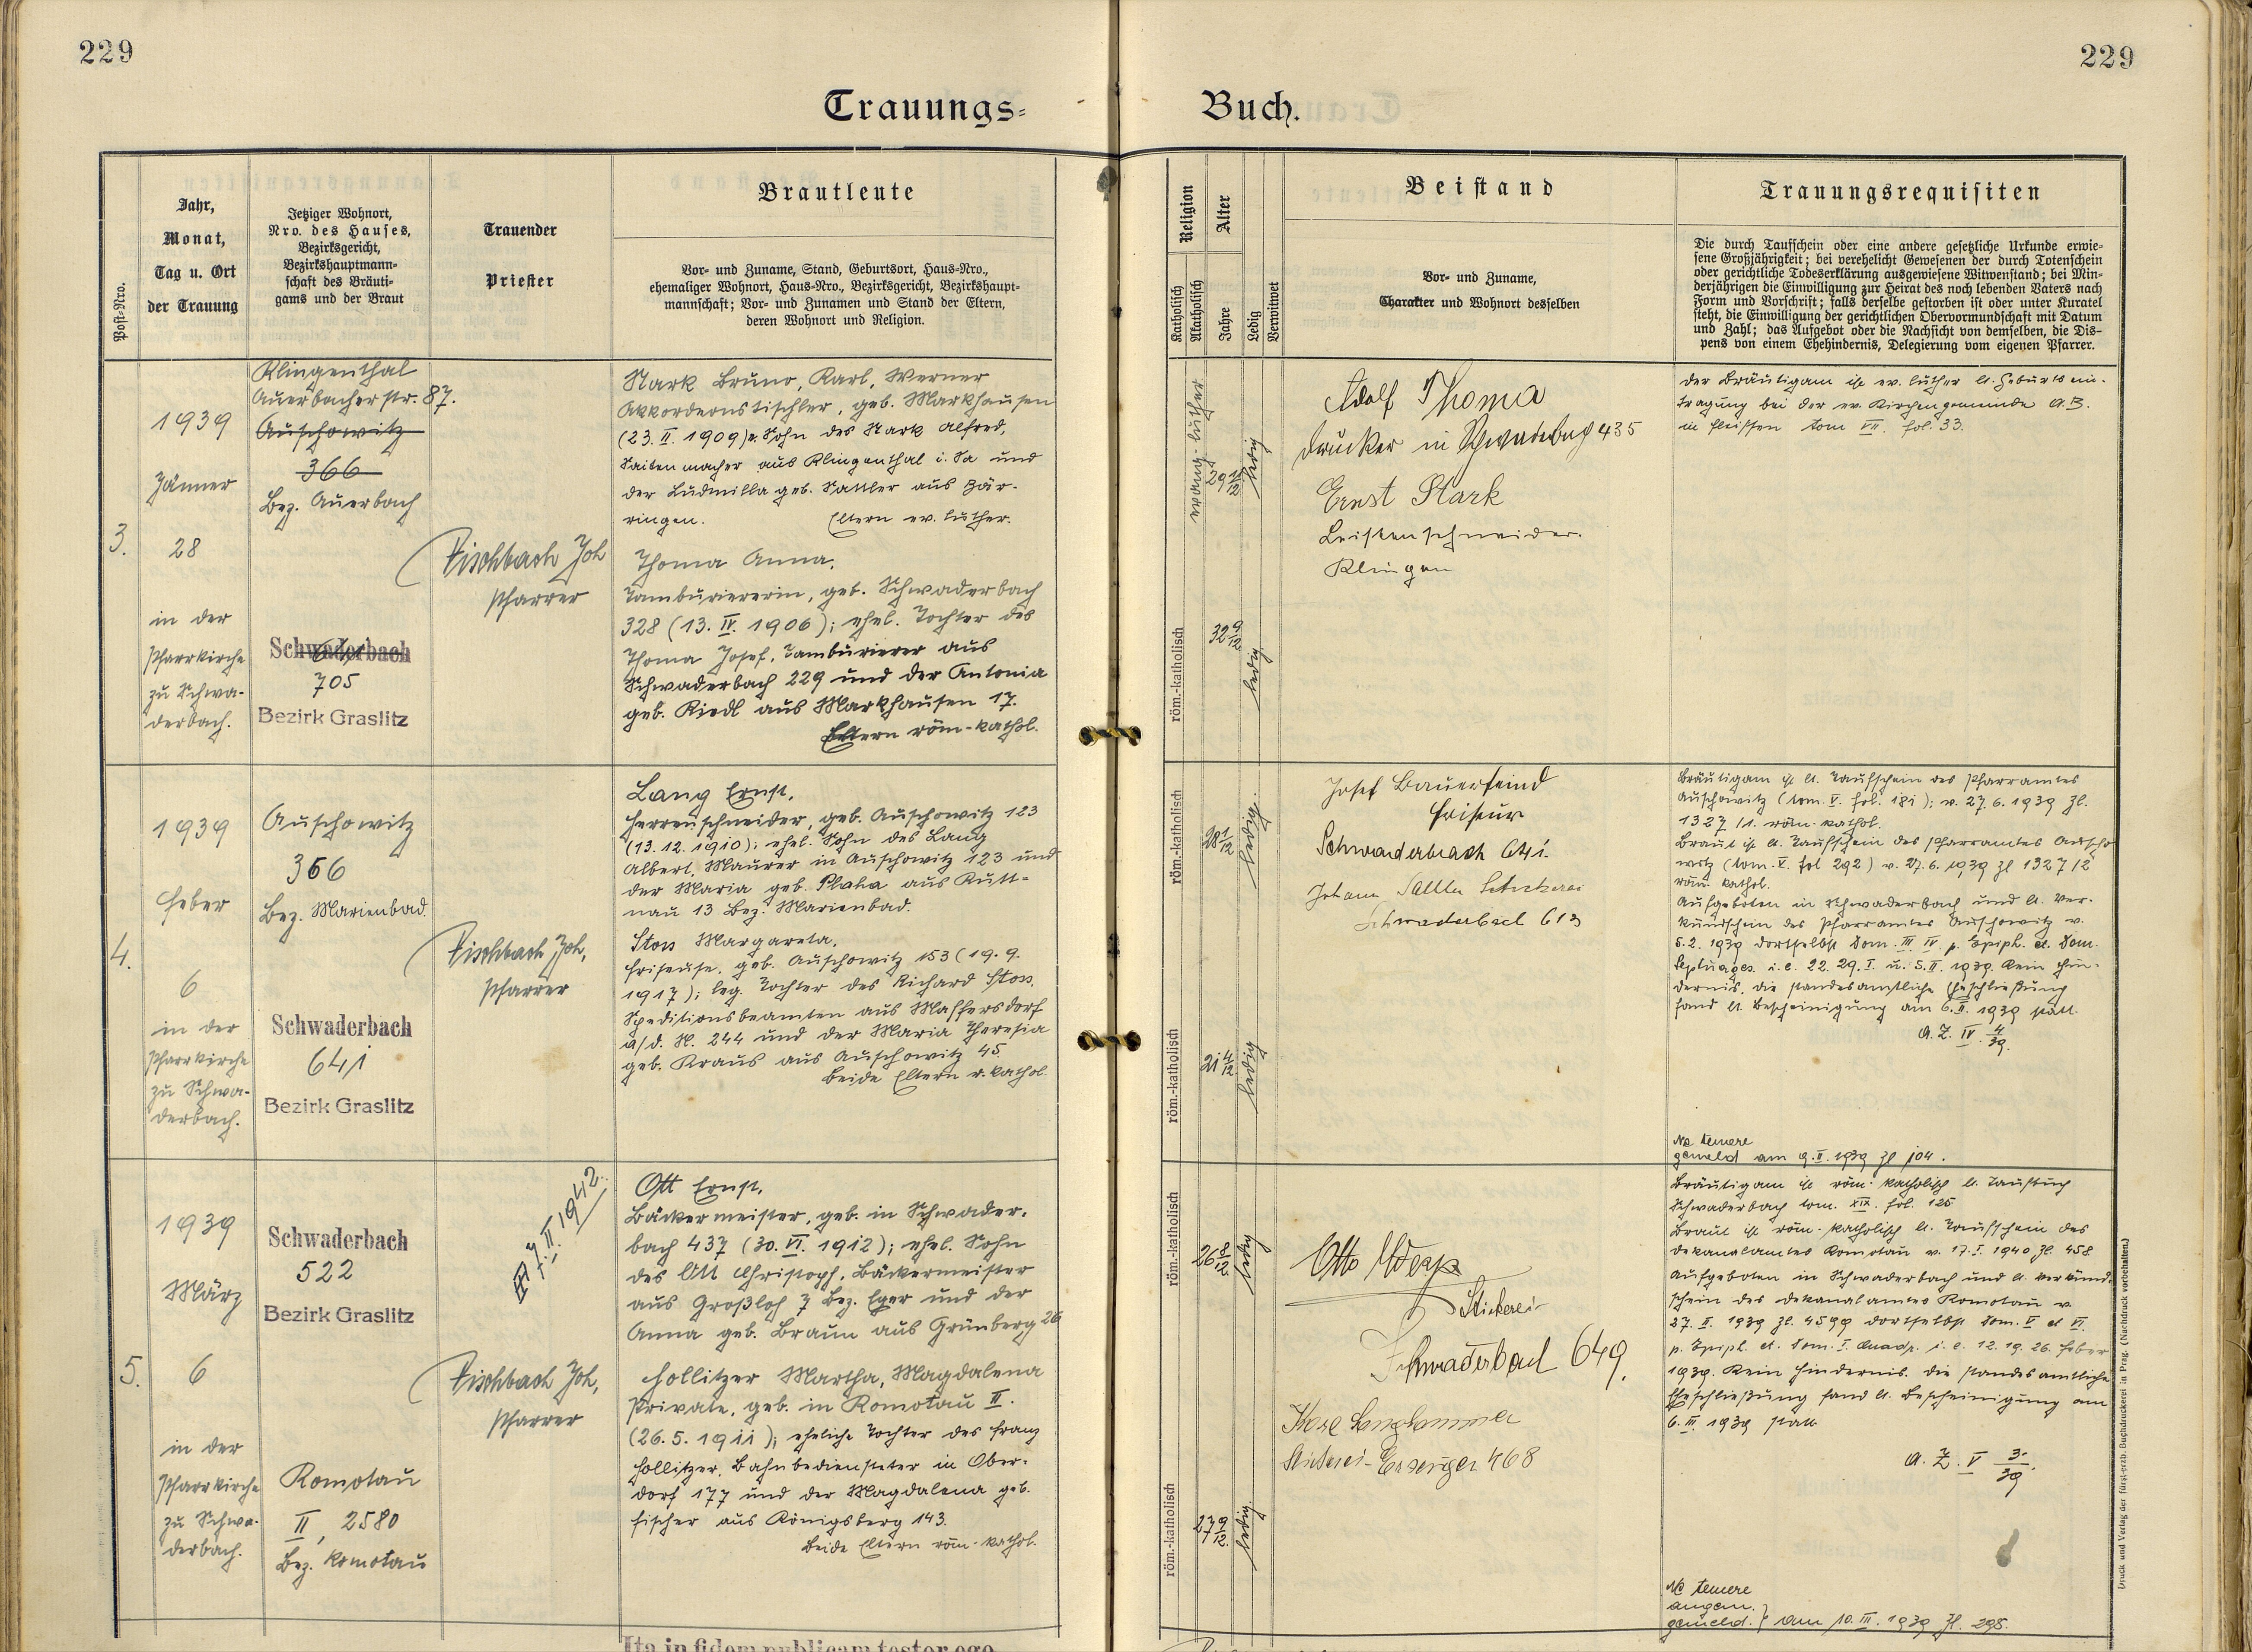 229
229
Trauungs=
Buch.
Post=Nro.
Jahr,
Monat,
Tag u. Ort
der Trauung
Jetziger Wohnort,
Nro. des Hauses,
Bezirksgericht,
Bezirkshauptmann=
schaft des Bräuti=
gams und der Braut
Trauender
Priester
Brautleute
Vor= und Zuname, Stand, Geburtsort, Haus=Nro.,
ehemaliger Wohnort, Haus=Nro., Bezirksgericht, Bezirkshaupt=
mannschaft; Vor= und Zunamen und Stand der Eltern,
deren Wohnort und Religion.
Religion
Katholisch
Akatholisch
Alter
Jahre
Ledig
Verwitwet
Beistand
Vor= und Zuname,
Charakter und Wohnort desselben
Trauungsrequisiten
Die durch Taufschein oder eine andere gesetzliche Urkunde erwie=
sene Großjährigkeit; bei verehelicht Gewesenen der durch Totenschein
oder gerichtliche Todeserklärung ausgewiesene Witwenstand; bei Min=
derjährigen die Einwilligung zur Heirat des noch lebenden Vaters nach
Form und Vorschrift; falls derselbe gestorben ist oder unter Kuratel
steht, die Einwilligung der gerichtlichen Obervormundschaft mit Datum
und Zahl; das Aufgebot oder die Nachsicht von demselben, die Dis=
pens von einem Ehehindernis, Delegierung vom eigenen Pfarrer.
3.
1939
Jänner
28
in der
Pfarrkirche
zu Schwa-
derbach.
Klingenthal
Auerbacherstr. 87.
Auschowitz
366
Bez. Auerbach
Schwaderbach
705
Bezirk Graslitz
Fischbach Joh
Pfarrer
Stark Bruno, Karl, Werner
Akkordeonstischler, geb. Markhausen
(23. II. 1909) e. Sohn des Stark Alfred,
Saitenmacher aus Klingenthal i. Sa und
der Ludmilla geb. Sattler aus Bär-
ringen. Eltern ev. luther.
Thoma Anna,
Tamburiererin, geb. Schwaderbach
328 (13. IV. 1906); ehel. Tochter des
Thoma Josef, Tamburierer aus
Schwaderbach 229 und der Antonia
geb. Riedl aus Markhausen 17.
Eltern röm-kathol.
evang-luther
29 11/12
ledig
röm.-katholisch
32 9/12
ledig
Adolf Thoma
Drucker in Schwaderbach 435
Ernst Stark
Leistenschneider.
Klingen
Der Bräutigam ist ev. luther lt. Geburtsein-
tragung bei der ev. Kirchengemeinde A.B.
in Fleissen tom VII. fol. 33.
4.
1939
Feber
6
in der
Pfarrkirche
zu Schwa-
derbach.
Auschowitz
366
Bez. Marienbad.
Schwaderbach
641
Bezirk Graslitz
Fischbach Joh,
Pfarrer
Lang Ernst,
Herrenschneider, geb. Auschowitz 123
(13. 12. 1910); ehel. Sohn des Lang
Albert, Maurer in Auschowitz 123 und
der Maria geb. Plaha aus Kutt=
nau 13 Bez. Marienbad.
Stoss Margareta,
Friseuse, geb. Auschowitz 153 (19. 9.
1917); leg. Tochter des Richard Stoss,
Speditionsbeamten aus Maffersdorf
a/d. N. 244 und der Maria Theresia
geb. Kraus aus Auschowitz 45.
Beide Eltern r. kathol.
röm.-katholisch
28 1/12
ledig.
röm.-katholisch
21 4/12
ledig
Josef Bauerfeind
Friseur
Schwaderbach 641.
Johann Sattler Stickerei
Schwaderbach 613
Bräutigam ist lt. Taufschein des Pfarramtes
Auschowitz (tom. V. fol. 181); v. 27. 6. 1939 Zl.
1327/1. röm. kathol.
Braut ist lt. Taufschein des Pfarramtes Auscho
witz (tom. V. fol 292) v. 27. 6. 1939 Zl 1327/2
röm. kathol.
Aufgeboten in Schwaderbach und lt. Ver-
kündschein des Pfarramtes Auschowitz v.
5. 2. 1939 dortselbst Dom. III IV p. Epiph. et Dom.
Septuages. i. e. 22. 29. I. u. 5. II. 1939. Kein Hin-
dernis, die standesamtliche Eheschließung
fand lt. Bescheinigung am 6. II. 1939 statt.
A. Z. IV. 4/39.
Ne temere
gemeld am 9. II. 1939 Zl 104.
5.
1939
März
6
in der
Pfarrkirche
zu Schwa-
derbach.
Schwaderbach
522
Bezirk Graslitz
Komotau
II, 2580
Bez. Komotau
7. II. 1942.
Fischbach Joh,
Pfarrer
Ott Ernst,
Bäckermeister, geb. in Schwader-
bach 437 (30. VI. 1912); ehel. Sohn
des Ott Christoph, Bäckermeister
aus Großloh 7 Bez. Eger und der
Anna geb. Braun aus Grünberg 26
Hollitzer Martha, Magdalena
Private, geb. in Komotau II.
(26. 5. 1911); eheliche Tochter des Franz
Hollitzer, Bahnbediensteter in Ober-
dorf 177 und der Magdalena geb.
Fischer aus Königsberg 143.
Beide Eltern röm-kathol.
röm.-katholisch
26 8/12
ledig
röm.-katholisch
27 9/12
ledig
Otto
Stickerei
Schwaderbach 649.
Langhammer
Stickerei-Erzeuger 468
Bräutigam ist röm. katholisch lt. Taufbuch
Schwaderbach tom. XIX. fol. 125
Braut ist röm-katholisch lt. Taufschein des
Dekanalamtes Komotau v. 17. I. 1940 Zl. 458
Aufgeboten in Schwaderbach und lt. Verkünd-
schein des Dekanalamtes Komotau v.
27. II. 1939 Zl. 4599 dortselbst Dom. V et VI.
p. Epiph. et. Dom. I. Quadr. i. e. 12. 19. 26. Feber
1939. Kein Hindernis. Die standesamtliche
Eheschließung fand lt. Bescheinigung am
6. III 1939 statt
A. Z. V 3/39.
Ne temere
angem.
gemeld. } am 10. III. 1939 Zl. 295.
Druck und Verlag der fürst-erzb. Buchdruckerei in Prag. (Nachdruck vorbehalten.)
Ita in fidem publicam testor ego